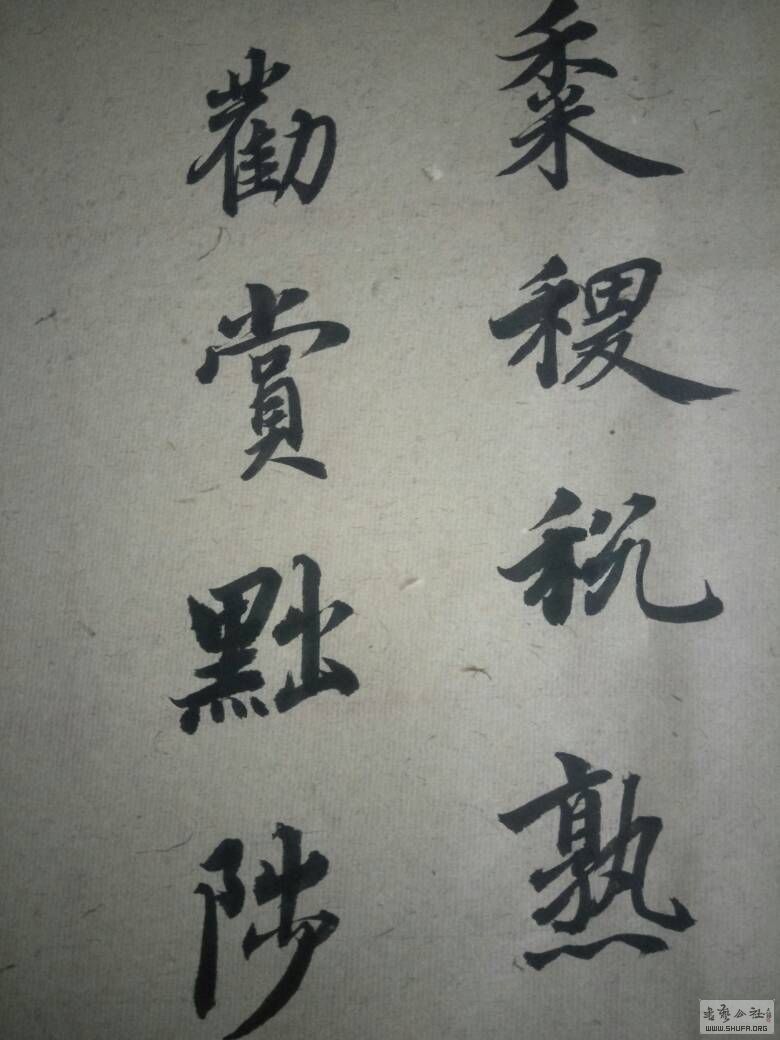 黍稷稅熟
勸賞黜陟
書藝公社
WWW.SHUFA.ORG